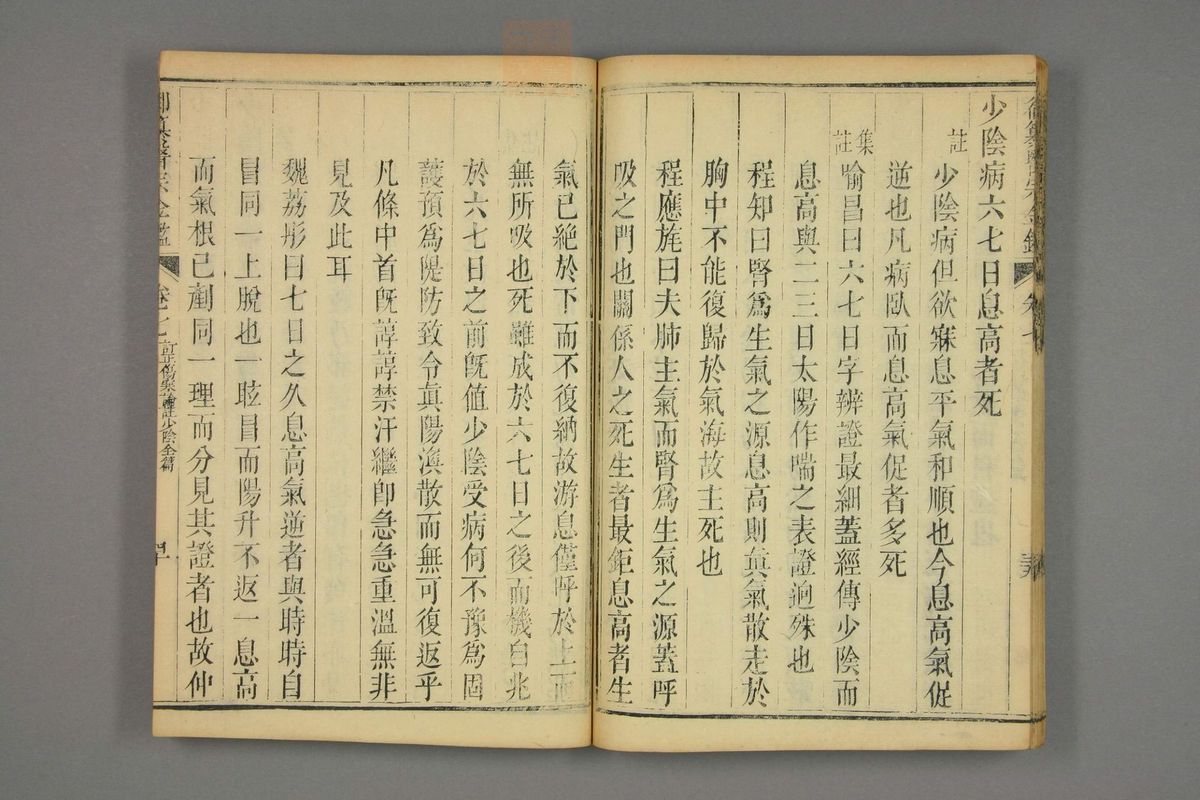 少陰病六七日息高者死
註
少陰病但欲寐息平氣和順也今息高氣促
逆也凡病臥而息高氣促者多死
集註
喻昌曰六七日字辨證最細蓋經傳少陰而
息高與二三日太陽作喘之表證逈殊也
程知曰腎爲生氣之源息高則眞氣散走於
胸中不能復歸於氣海故主死也
程應旄曰夫肺主氣而腎爲生氣之源蓋呼
吸之門也關係人之死生者最鉅息高者生
氣已絶於下而不復納故游息僅呼於上而
無所吸也死雖成於六七日之後而機自兆
於六七日之前旣值少陰受病何不豫爲固
護預爲隄防致令眞陽渙散而無可復返乎
凡條中首旣諄諄禁汗繼卽急急重溫無非
見及此耳
魏荔彤曰七日之久息高氣逆者與時時自
冒同一上脫也一眩冒而陽升不返一息高
而氣根已剷同一理而分見其證者也故仲
御纂醫宗金鑑
卷七
訂正傷寒論註少陰全篇